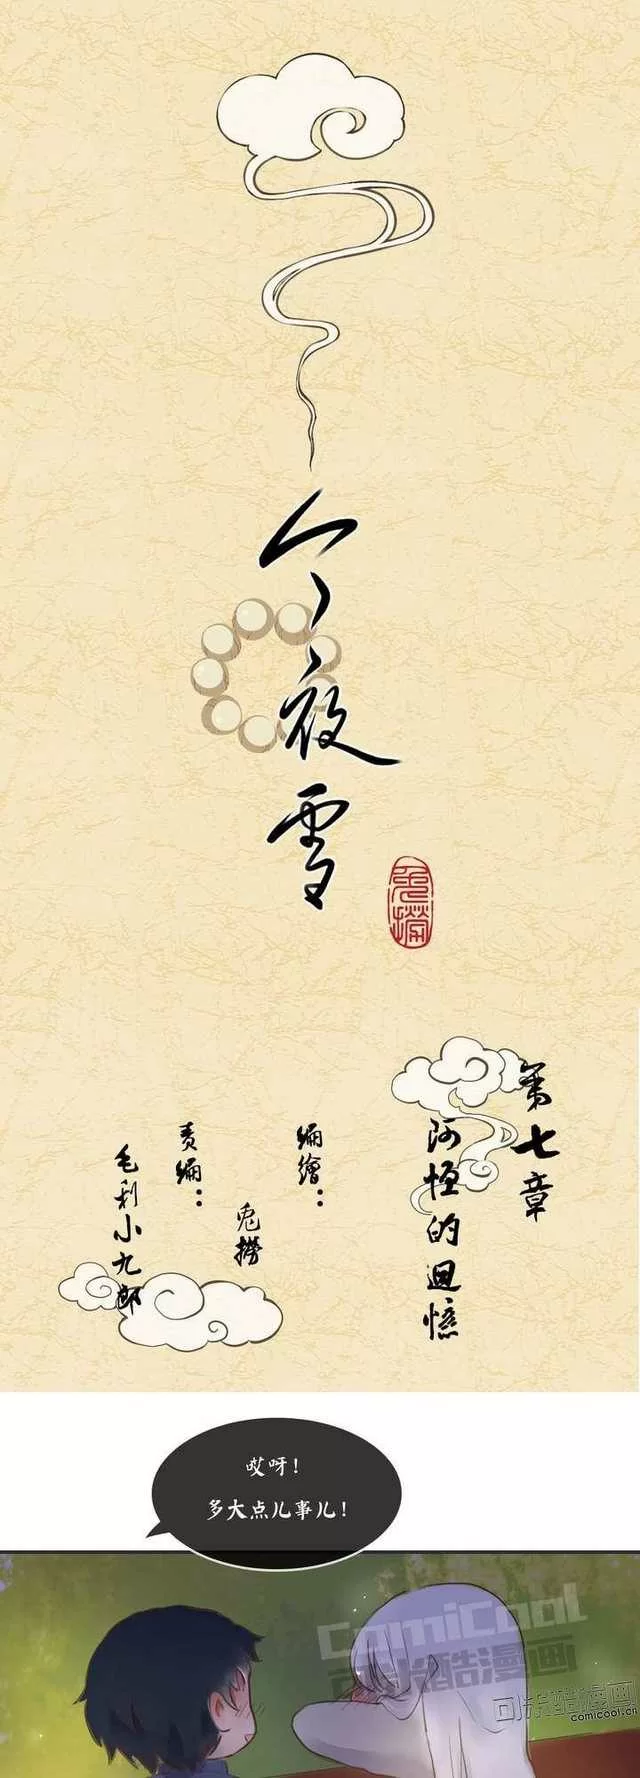 今夜雪
兔撈
第七章
阿恒的迴憶
編繪：
兔撈
責編：
毛利小九郎
哎呀！
多大点儿事儿！
ComiCool
可米酷漫画
可米酷漫画
comicool.cn